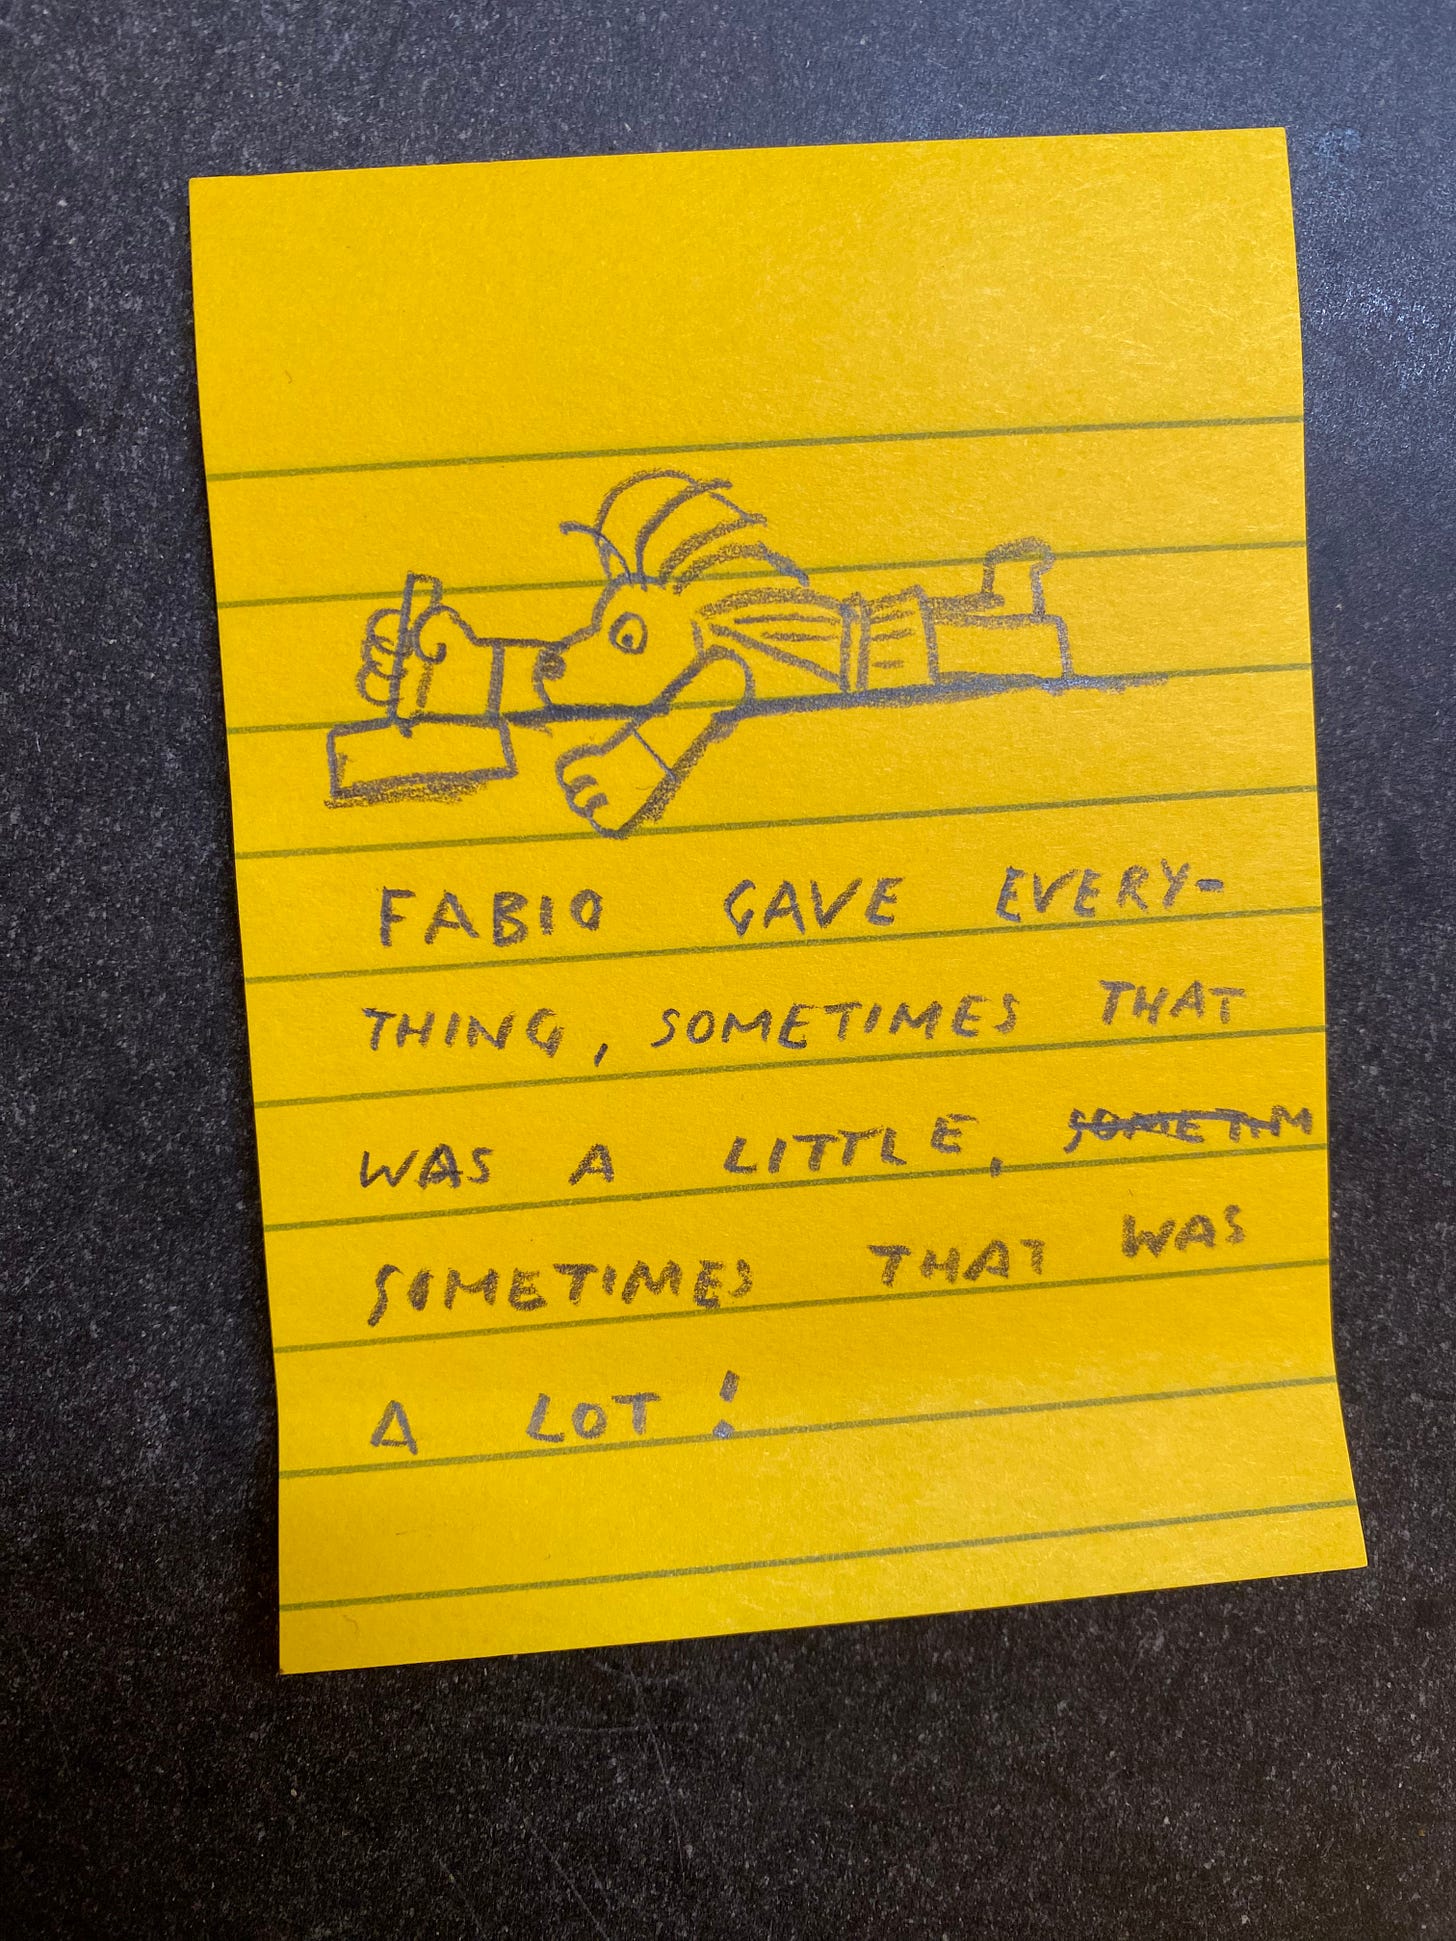 FABIO GAVE EVERY-
THING, SOMETIMES THAT
WAS A LITTLE, SOMETIM
SOMETIMES THAT WAS
A LOT!